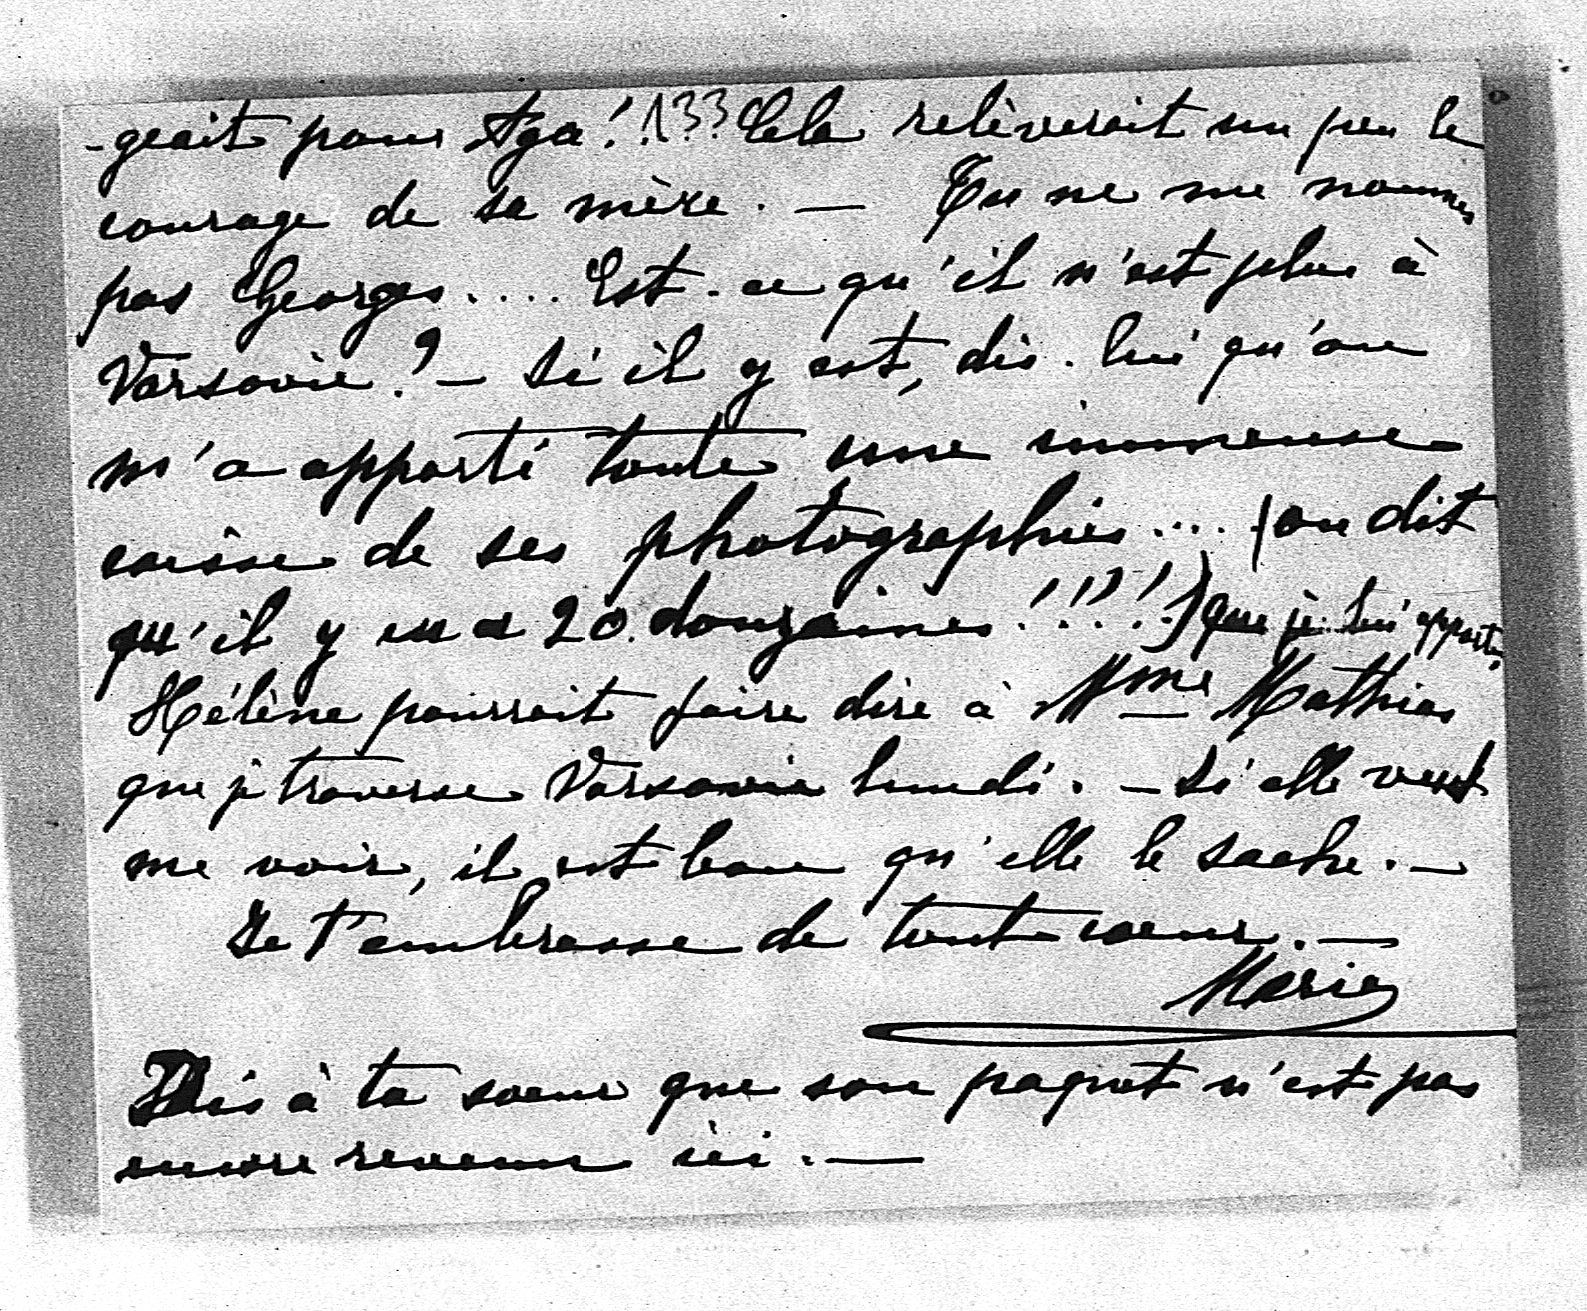 -geait pour Aga!.133 Cela relèverait un peu le
courage de sa mère. — Tu ne me nommes
pas Georges.... Est-ce qu'il n'est plus à
Varsovie? — Si il y est, dis-lui qu'on
m'a apporté toute une immense
caisse de ses photographies.... (on dit
qu'il y en a 20 douzaines!!!!) que je lui apporte.
Hélène pourrait faire dire à Mme Mathias
que je traverse Varsovie lundi. — Si elle veut
me voir, il est bon qu'elle le sache. —
Je t'embrasse de tout cœur. —
Marie
Dis à ta sœur que son paquet n'est pas
encore revenu ici. —